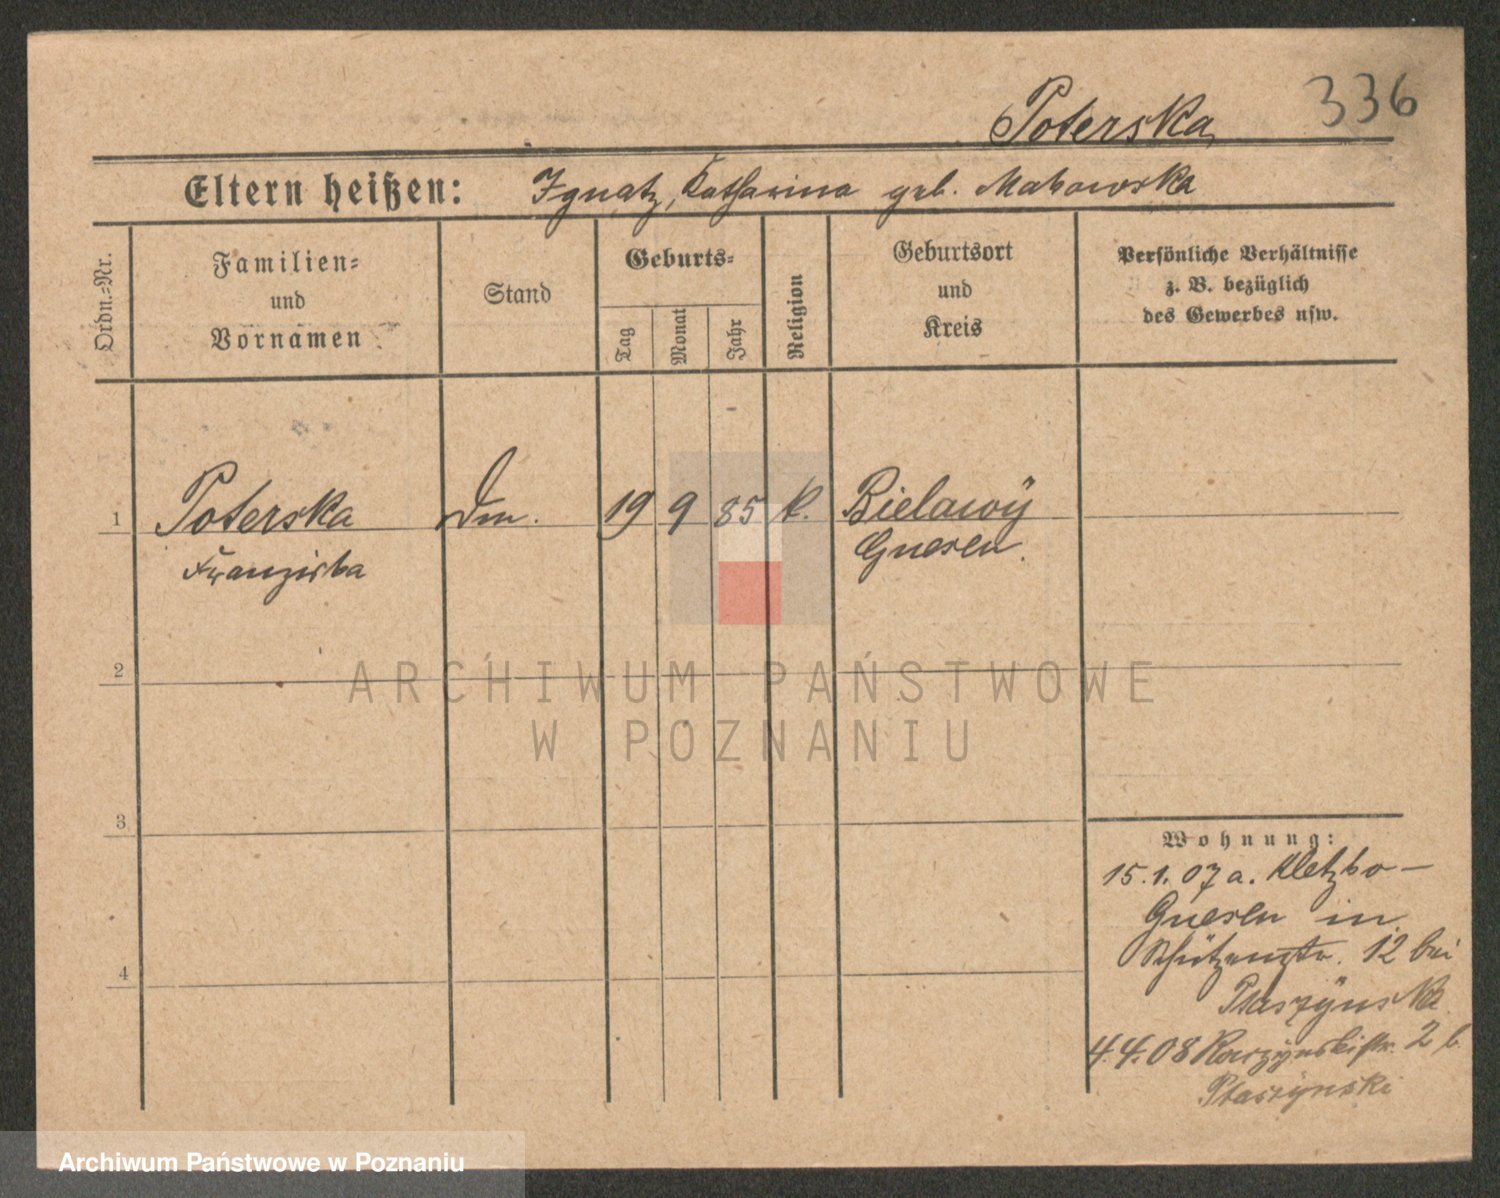 336
Poterska
Eltern heißen: Ignatz, Katharina geb. Makowska
Ordn.-Nr.
Familien-
und
Vornamen
Stand
Geburts-
Tag
Monat
Jahr
Religion
Geburtsort
und
Kreis
Persönliche Verhältnisse
z. B. bezüglich
des Gewerbes usw.
1 Poterska Dm. 19 9 85 k. Bielawÿ
Franziska Gnesen.
2
ARCHIWUM PAŃSTWOWE
W POZNANIU
3
Wohnung:
15.1.07 a. Kletzko-
Gnesen in
Schützenstr. 12 bei
Ptaszÿnska
4
4.4.08 2 b.
Ptaszynski
Archiwum Państwowe w Poznaniu